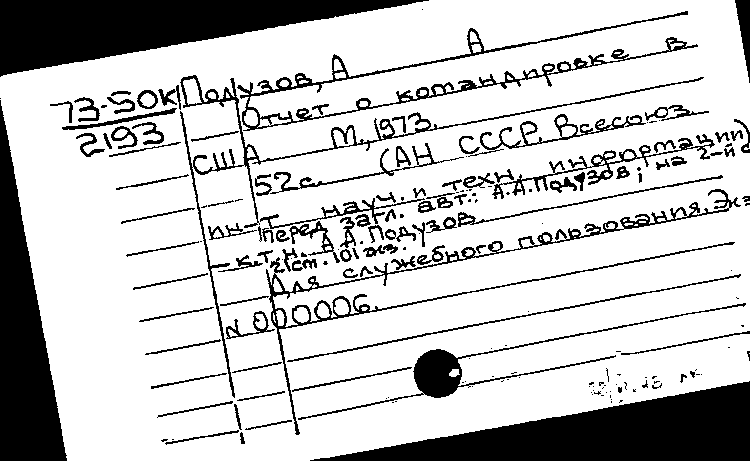 73-50К Подузов, А А
2193 Отчет о командировке в
США. М., 1973.
52с. (АН СССР. Всесоюз.
ин-т науч. и техн. информации)
перед загл. авт.: А.А.Подузов; на 2-й с
— к.т.н. А.А.Подузов.
21ст. 101 экз.
Для служебного пользования. Экз
N 000006.